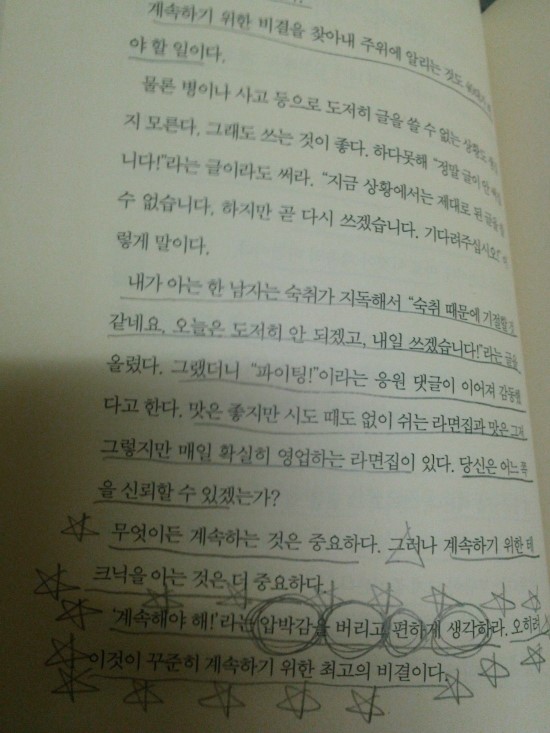 계속하기 위한 비결을 찾아내 주위에 알리는 것도
야 할 일이다.
물론 병이나 사고 등으로 도저히 글을 쓸 수 없는 상황도
지 모른다. 그래도 쓰는 것이 좋다. 하다못해 "정말 글이 안
니다!"라는 글이라도 써라. "지금 상황에서는 제대로 된 글을
수 없습니다. 하지만 곧 다시 쓰겠습니다. 기다려주십시오!"
렇게 말이다.
내가 아는 한 남자는 숙취가 지독해서 "숙취 때문에 기절할 것
같네요, 오늘은 도저히 안 되겠고, 내일 쓰겠습니다!"라는 글을
올렸다. 그랬더니 "파이팅!"이라는 응원 댓글이 이어져 감동했
다고 한다. 맛은 좋지만 시도 때도 없이 쉬는 라면집과 맛은 그저
그렇지만 매일 확실히 영업하는 라면집이 있다. 당신은 어느 쪽
을 신뢰할 수 있겠는가?
무엇이든 계속하는 것은 중요하다. 그러나 계속하기 위한 테
크닉을 아는 것은 더 중요하다.
'계속해야 해!'라는 압박감을 버리고 편하게 생각하라. 오히려
이것이 꾸준히 계속하기 위한 최고의 비결이다.